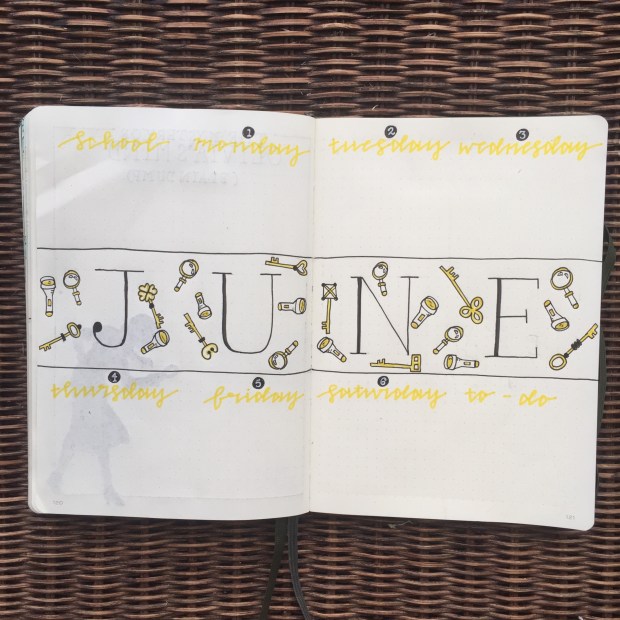 1 2 3
school monday tuesday wednesday
JUNE
4 5 6
thursday friday saturday to-do